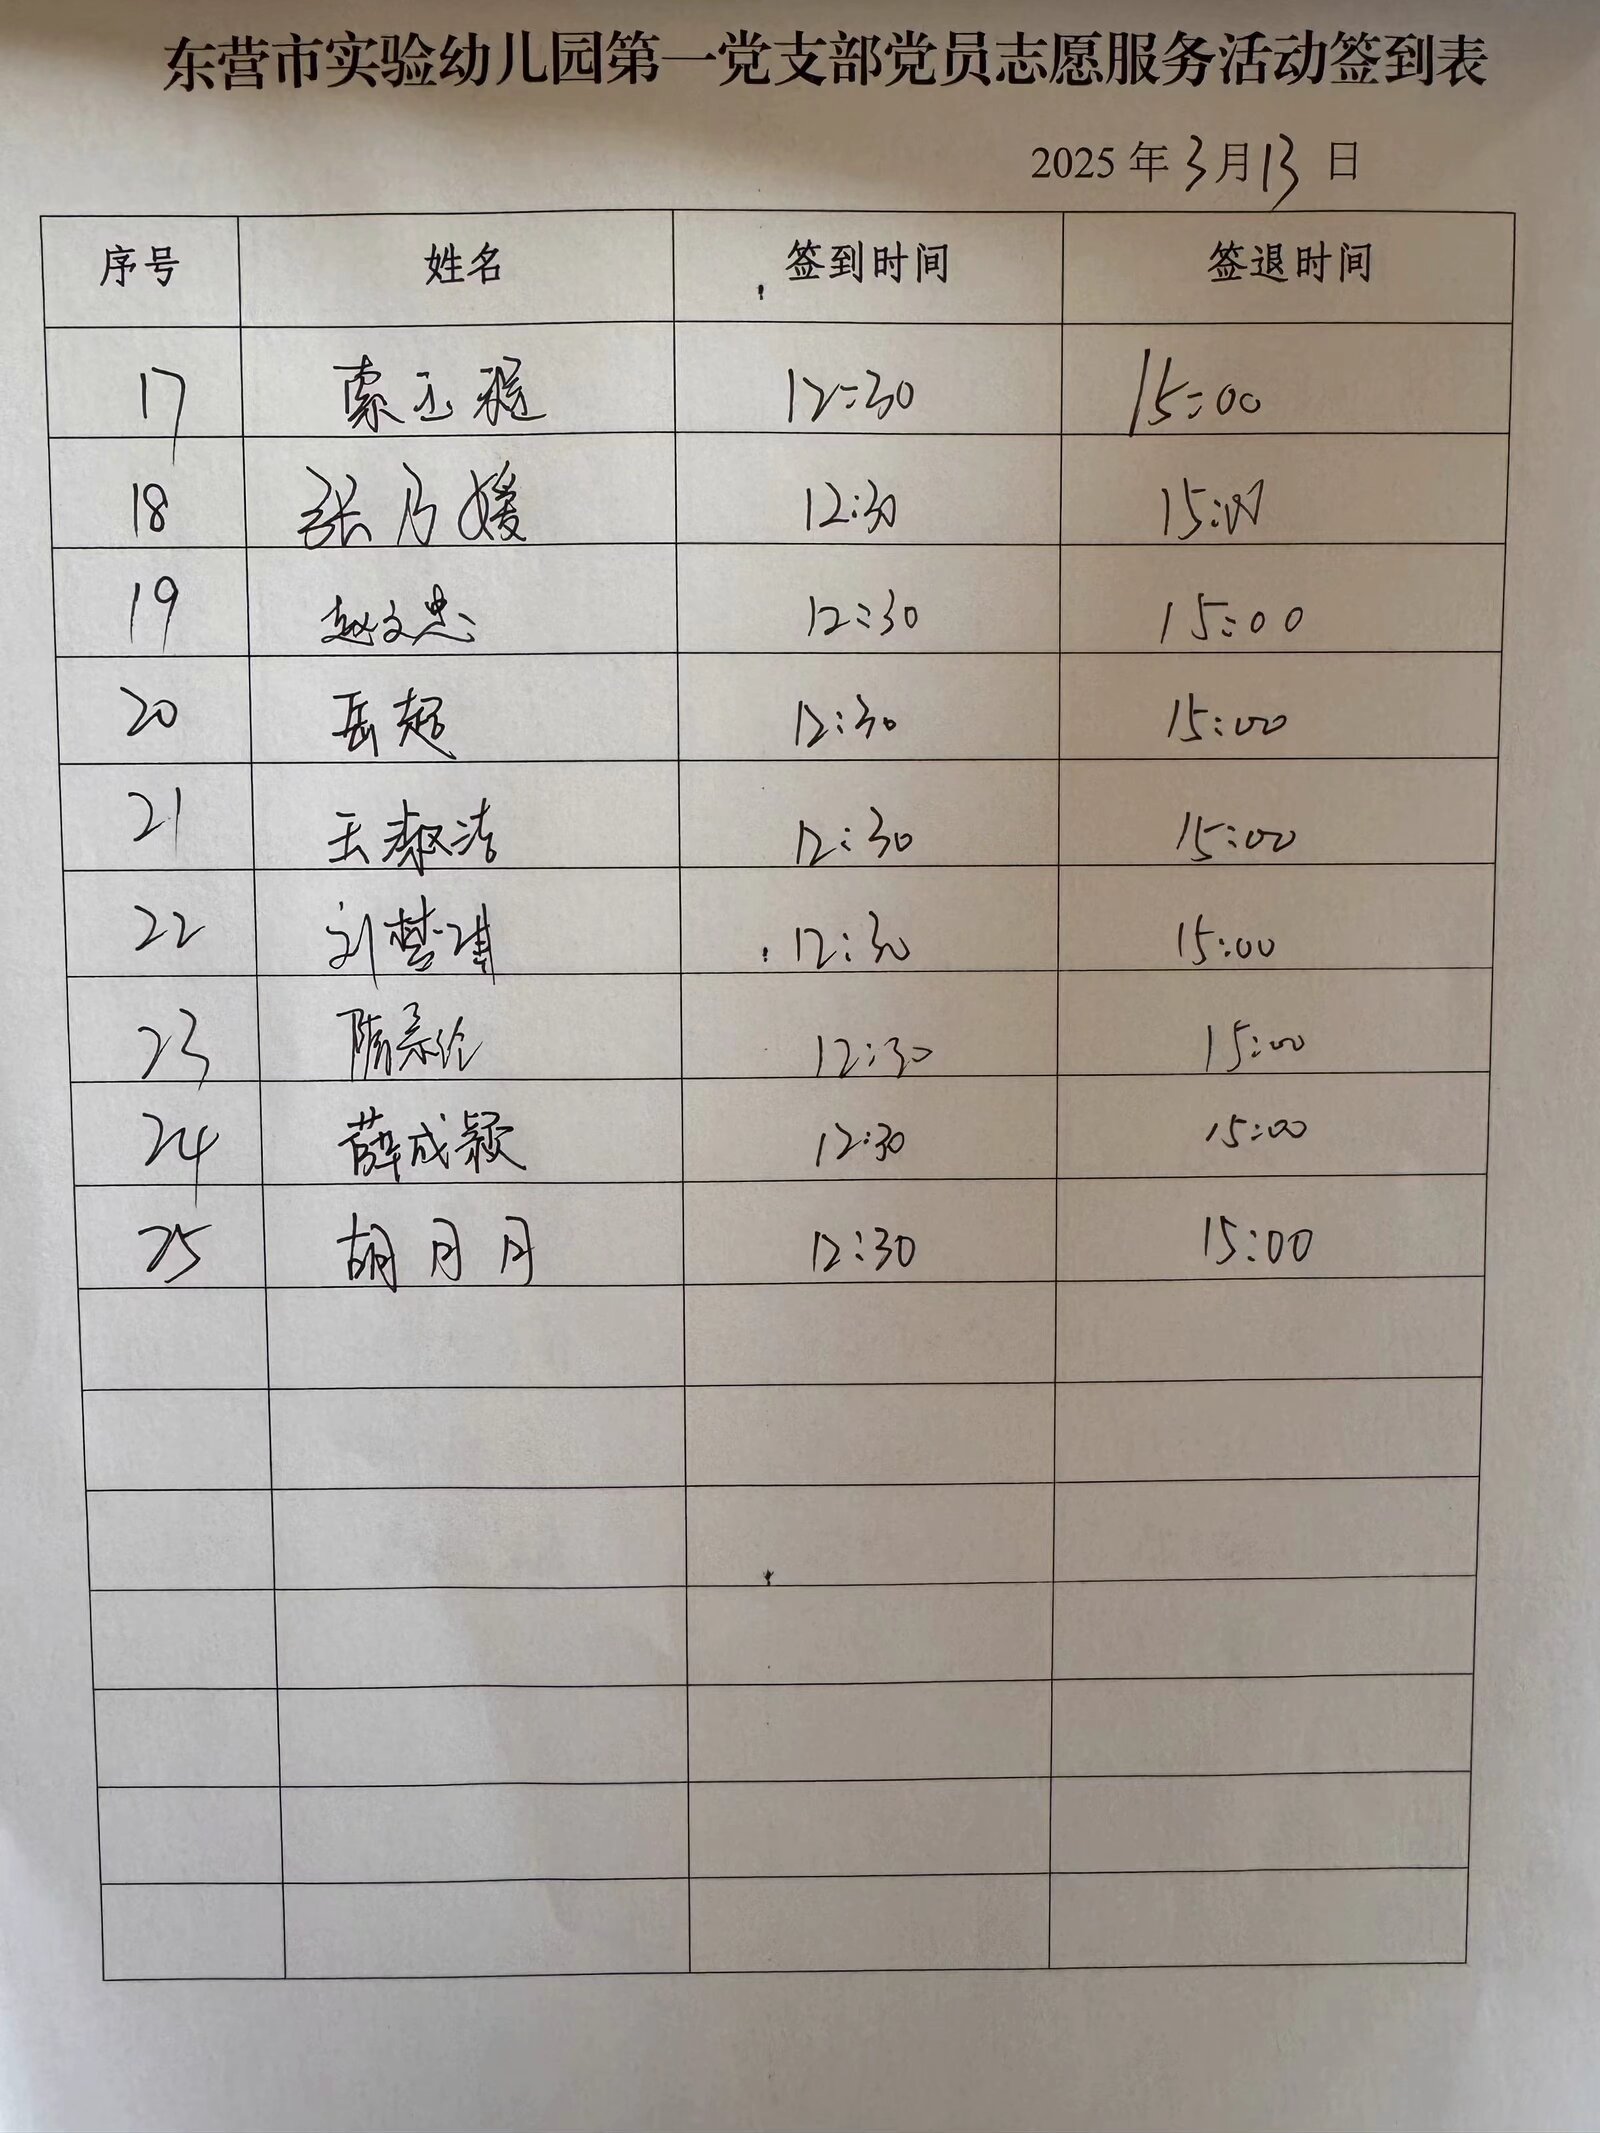 东营市实验幼儿园第一党支部党员志愿服务活动签到表
2025 年 3 月 13 日
序号 姓名 签到时间 签退时间
17 12:30 15:00
18 张乃媛 12:30 15:00
19 赵文忠 12:30 15:00
20 岳超 12:30 15:00
21 王淑洁 12:30 15:00
22 刘楚琪 12:30 15:00
23 12:30 15:00
24 薛成颖 12:30 15:00
25 胡月月 12:30 15:00